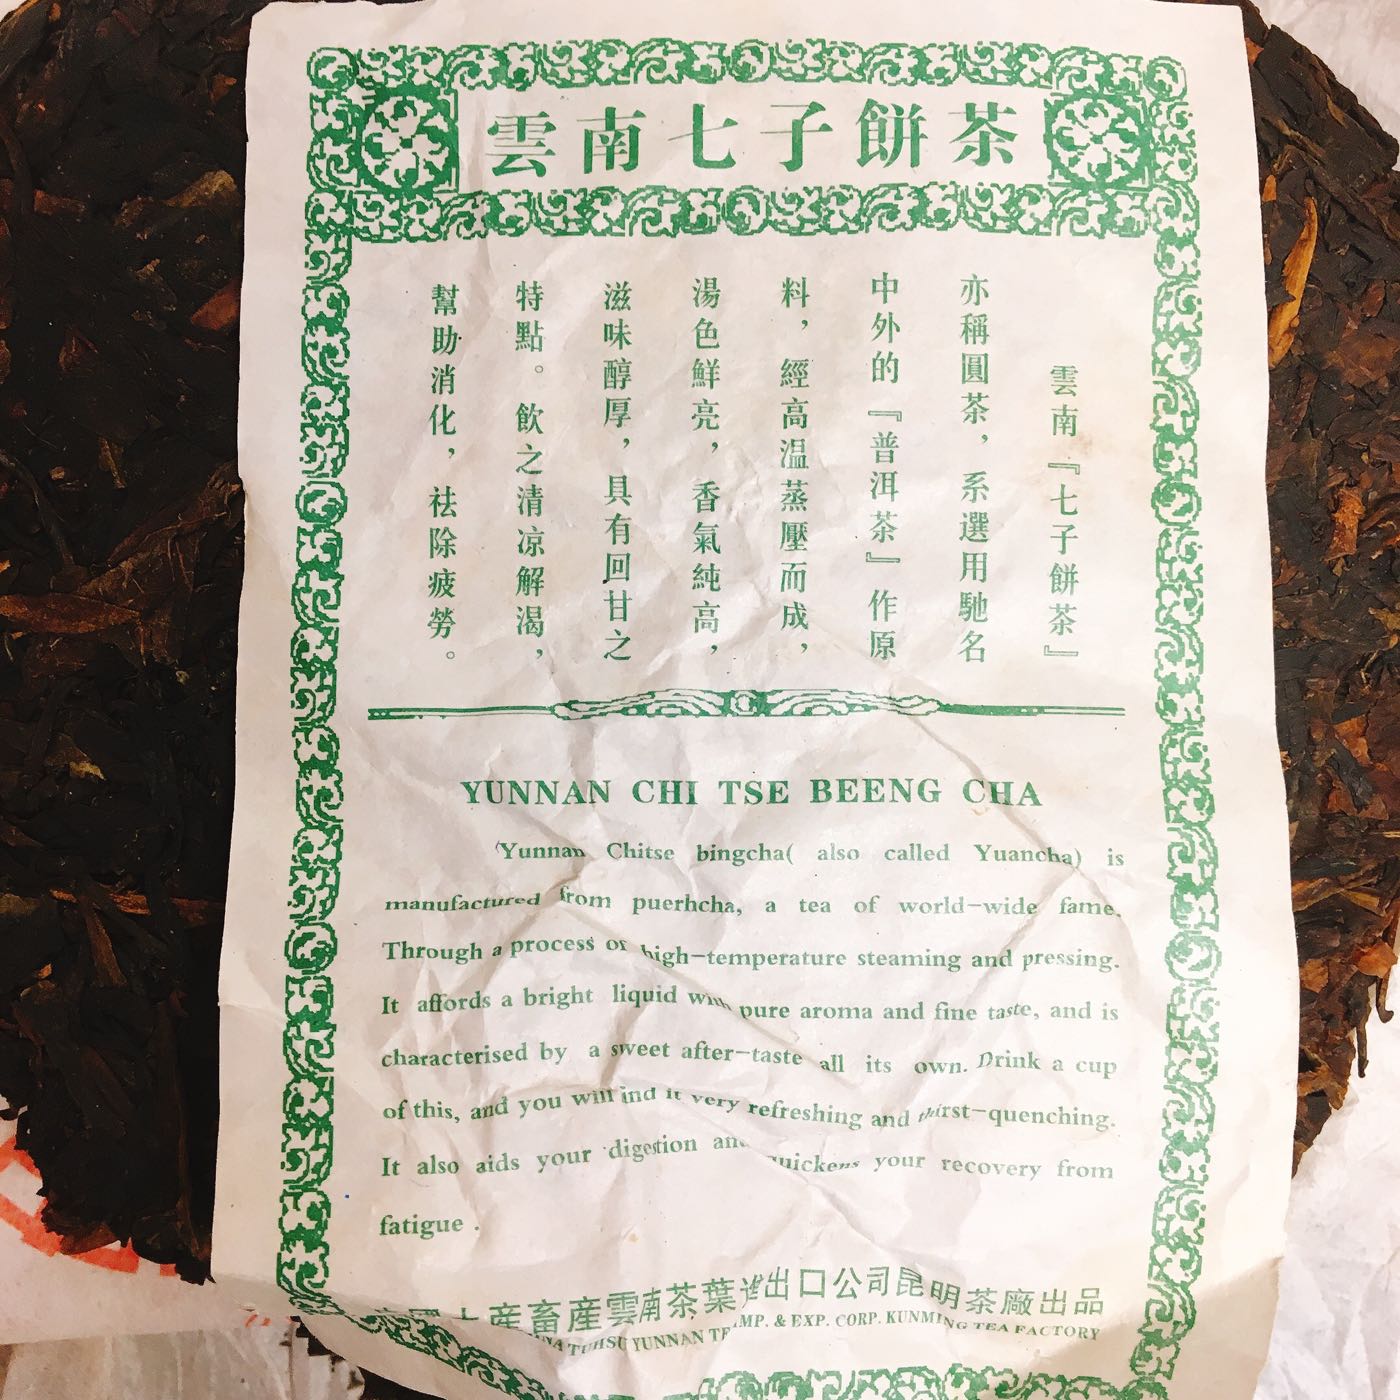 雲南七子餅茶
雲南『七子餅茶』
亦稱圓茶，系選用馳名
中外的『普洱茶』作原
料，經高温蒸壓而成，
湯色鮮亮，香氣純高，
滋味醇厚，具有回甘之
特點。飲之清凉解渴，
幫助消化，祛除疲勞。
YUNNAN CHI TSE BEENG CHA
Yunnan Chitse bingcha( also called Yuancha) is
manufactured from puerhcha, a tea of world-wide fame.
Through a process of high-temperature steaming and pressing.
It affords a bright liquid with pure aroma and fine taste, and is
characterised by a sweet after-taste all its own. Drink a cup
of this, and you will ind it very refreshing and thirst-quenching.
It also aids your digestion and quickens your recovery from
fatigue .
産畜産雲南茶葉進出口公司昆明茶廠出品
YUNNAN IMP. & EXP. CORP. KUNMING TEA FACTORY